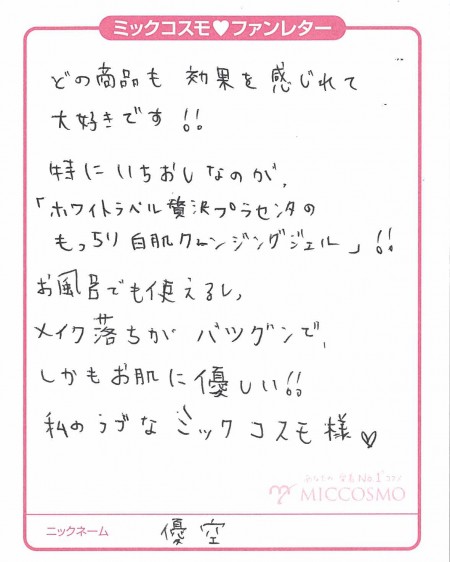 ミックコスモ♥ファンレター
どの商品も 効果を感じれて
大好きです!!
特にいちおしなのが、
「ホワイトラベル贅沢プラセンタの
もっちり白肌クレンジングジェル」!!
お風呂でも使えるし、
メイク落ちがバツグンで、
しかもお肌に優しい!!
私のラブなミックコスモ様♡
MICCOSMO
ニックネーム 優空